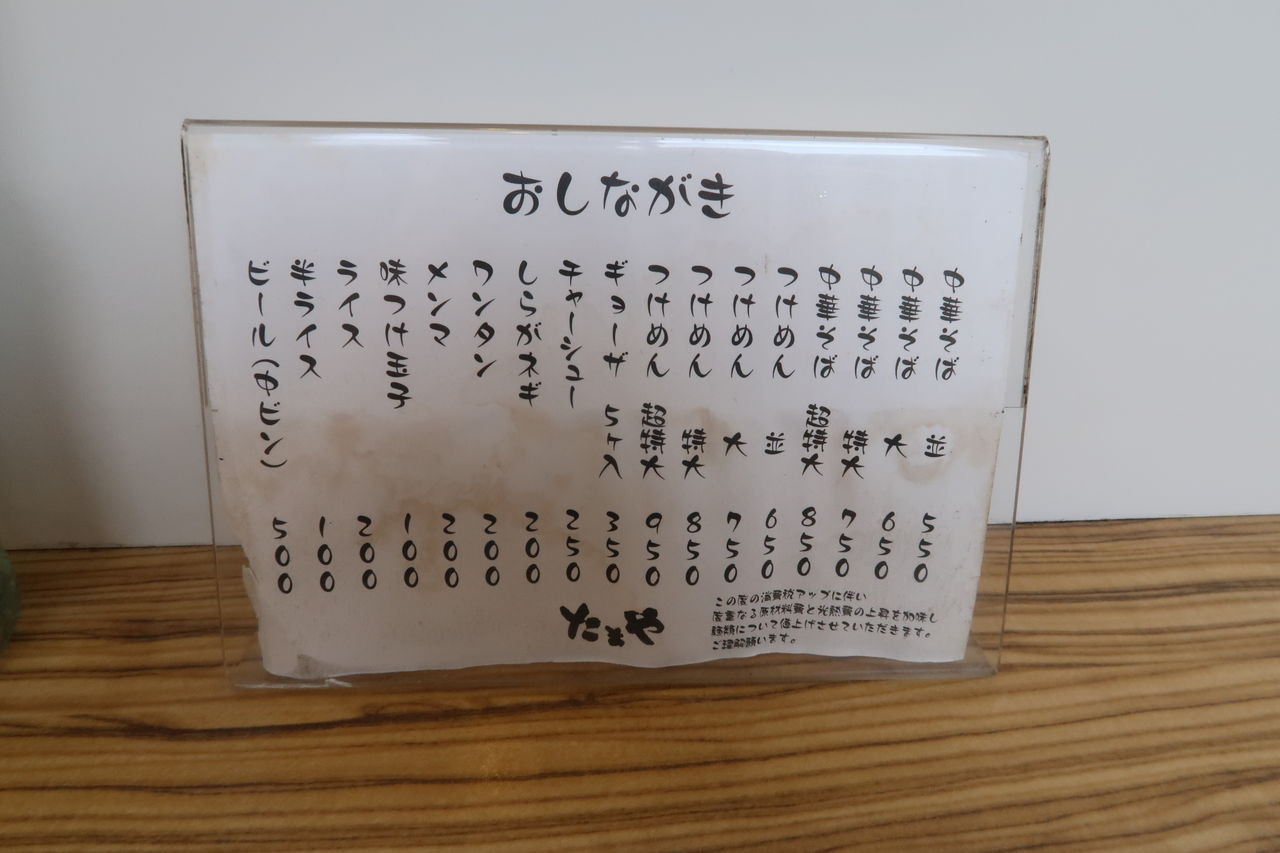 おしながき
中華そば 並 550
中華そば 大 650
中華そば 特大 750
中華そば 超特大 850
つけめん 並 650
つけめん 大 750
つけめん 特大 850
つけめん 超特大 950
ギョーザ 5ヶ入 350
チャーシュー 250
しらがネギ 200
ワンタン 200
メンマ 200
味つけ玉子 100
ライス 200
半ライス 100
ビール(中ビン) 500
この度の消費税アップに伴い
度重なる原材料費と光熱費の上昇を加味し
麺類について値上げさせていただきます。
ご理解願います。
たまや